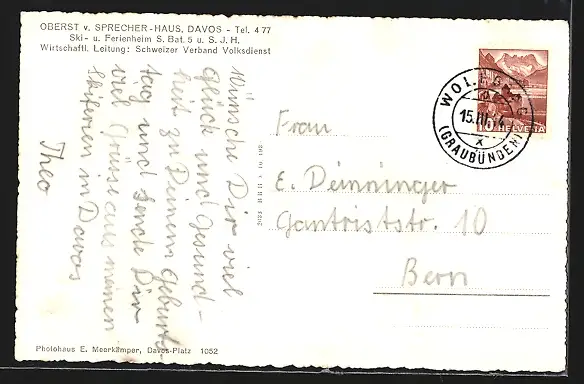 OBERST v. SPRECHER-HAUS, DAVOS - Tel. 4 77
Ski- u. Ferienheim S. Bat. 5 u. S. J. H.
Wirtschaftl. Leitung: Schweizer Verband Volksdienst
Wünsche Dir viel
Glück und Gesund-
heit zu Deinem Geburts-
tag und sende Dir
viel Grüsse aus meinen
Skiferien in Davos
Theo
Frau
E. Deininger
Gantriststr. 10
Bern
WOLFGANG
15.III.
(GRAUBÜNDEN)
X
10 HELVETIA
Photohaus E. Meerkämper, Davos-Platz 1052